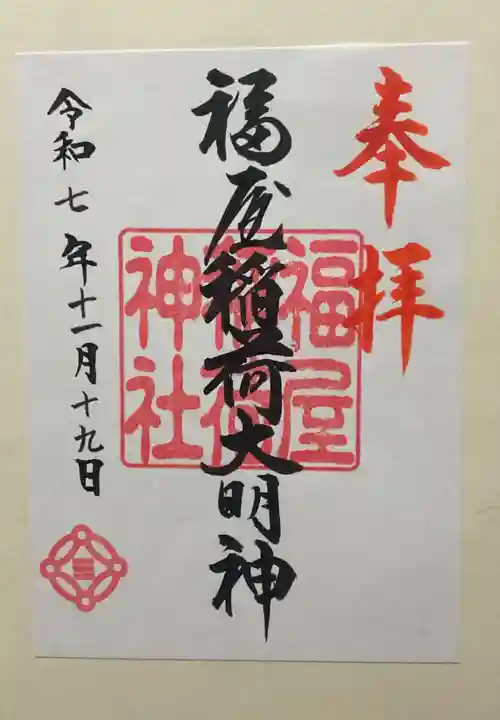 奉拝
福屋稲荷大明神
福屋
稲荷
神社
令和七年十一月十九日
三